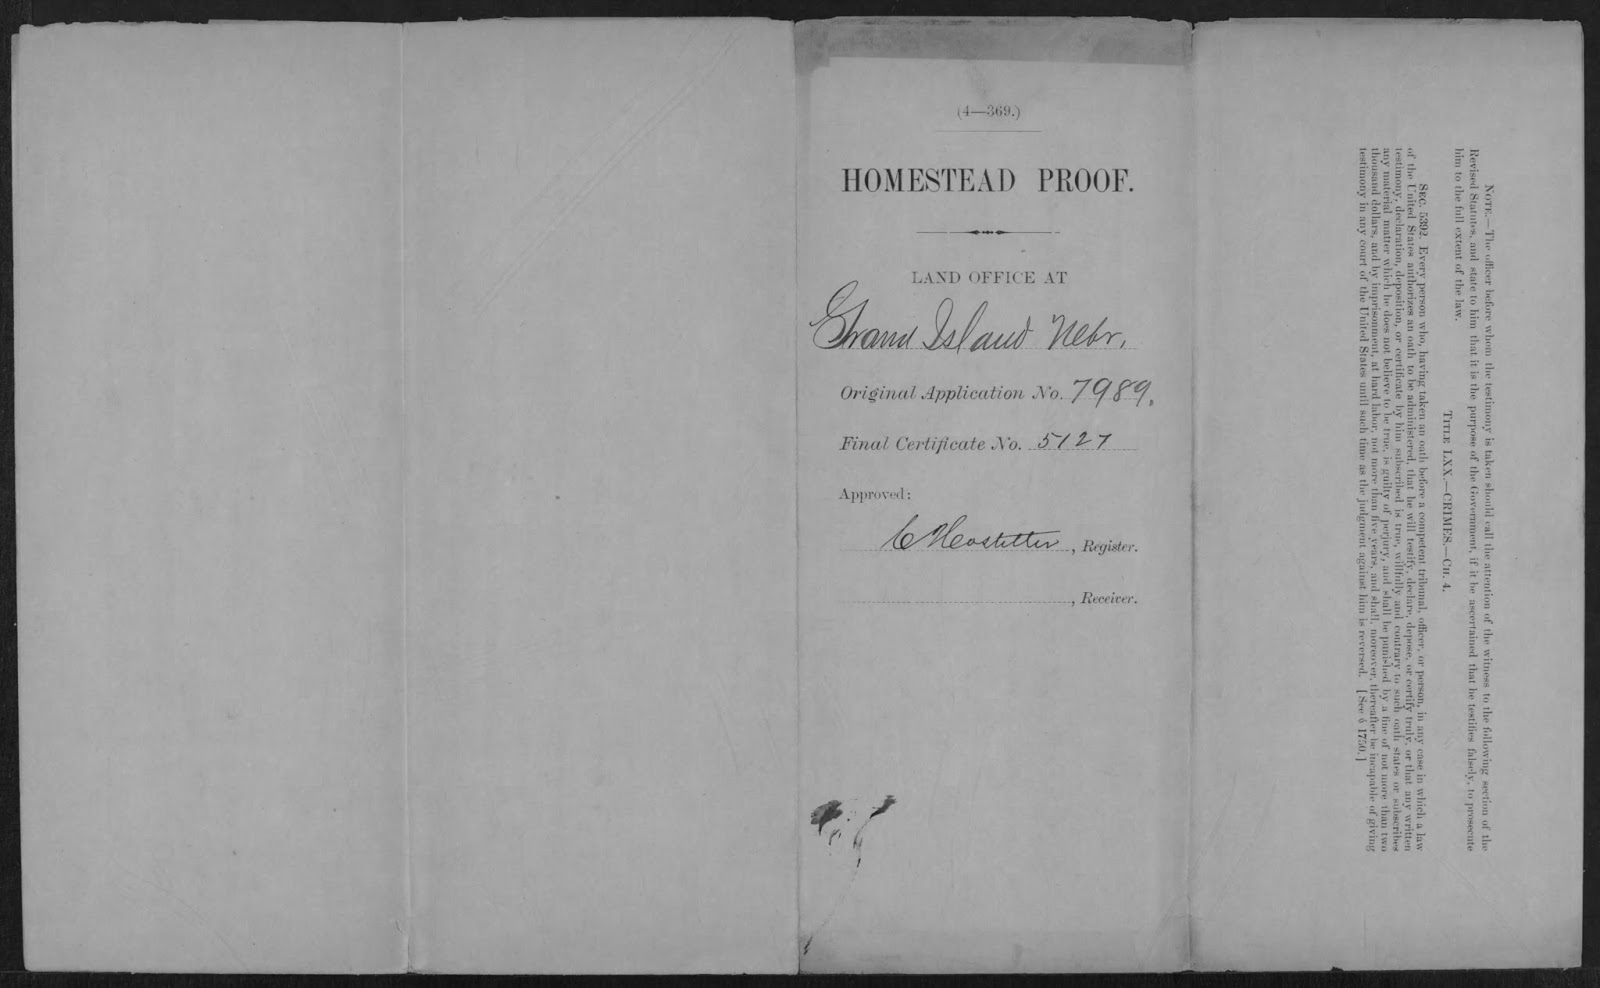 (4—369.)
HOMESTEAD PROOF.
LAND OFFICE AT
Grand Island Nebr.
Original Application No. 7989.
Final Certificate No. 5127
Approved:
C Hostetter, Register.
, Receiver.
NOTE.—The officer before whom the testimony is taken should call the attention of the witness to the following section of the
Revised Statutes, and state to him that it is the purpose of the Government, if it be ascertained that he testifies falsely, to prosecute
him to the full extent of the law.
TITLE LXX.—CRIMES.—CH. 4.
SEC. 5392. Every person who, having taken an oath before a competent tribunal, officer, or person, in any case in which a law
of the United States authorizes an oath to be administered, that he will testify, declare, depose, or certify truly, or that any written
testimony, declaration, deposition, or certificate by him subscribed is true, willfully and contrary to such oath states or subscribes
any material matter which he does not believe to be true, is guilty of perjury, and shall be punished by a fine of not more than two
thousand dollars, and by imprisonment, at hard labor, not more than five years, and shall, moreover, thereafter be incapable of giving
testimony in any court of the United States until such time as the judgment against him is reversed. [See § 1750.]